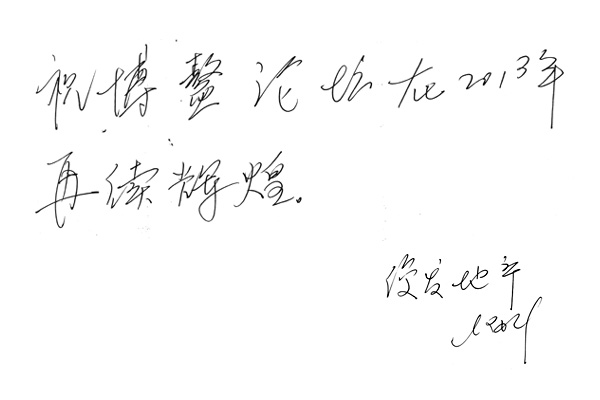 祝博鳌论坛在2013年
再续辉煌。
俊发地产